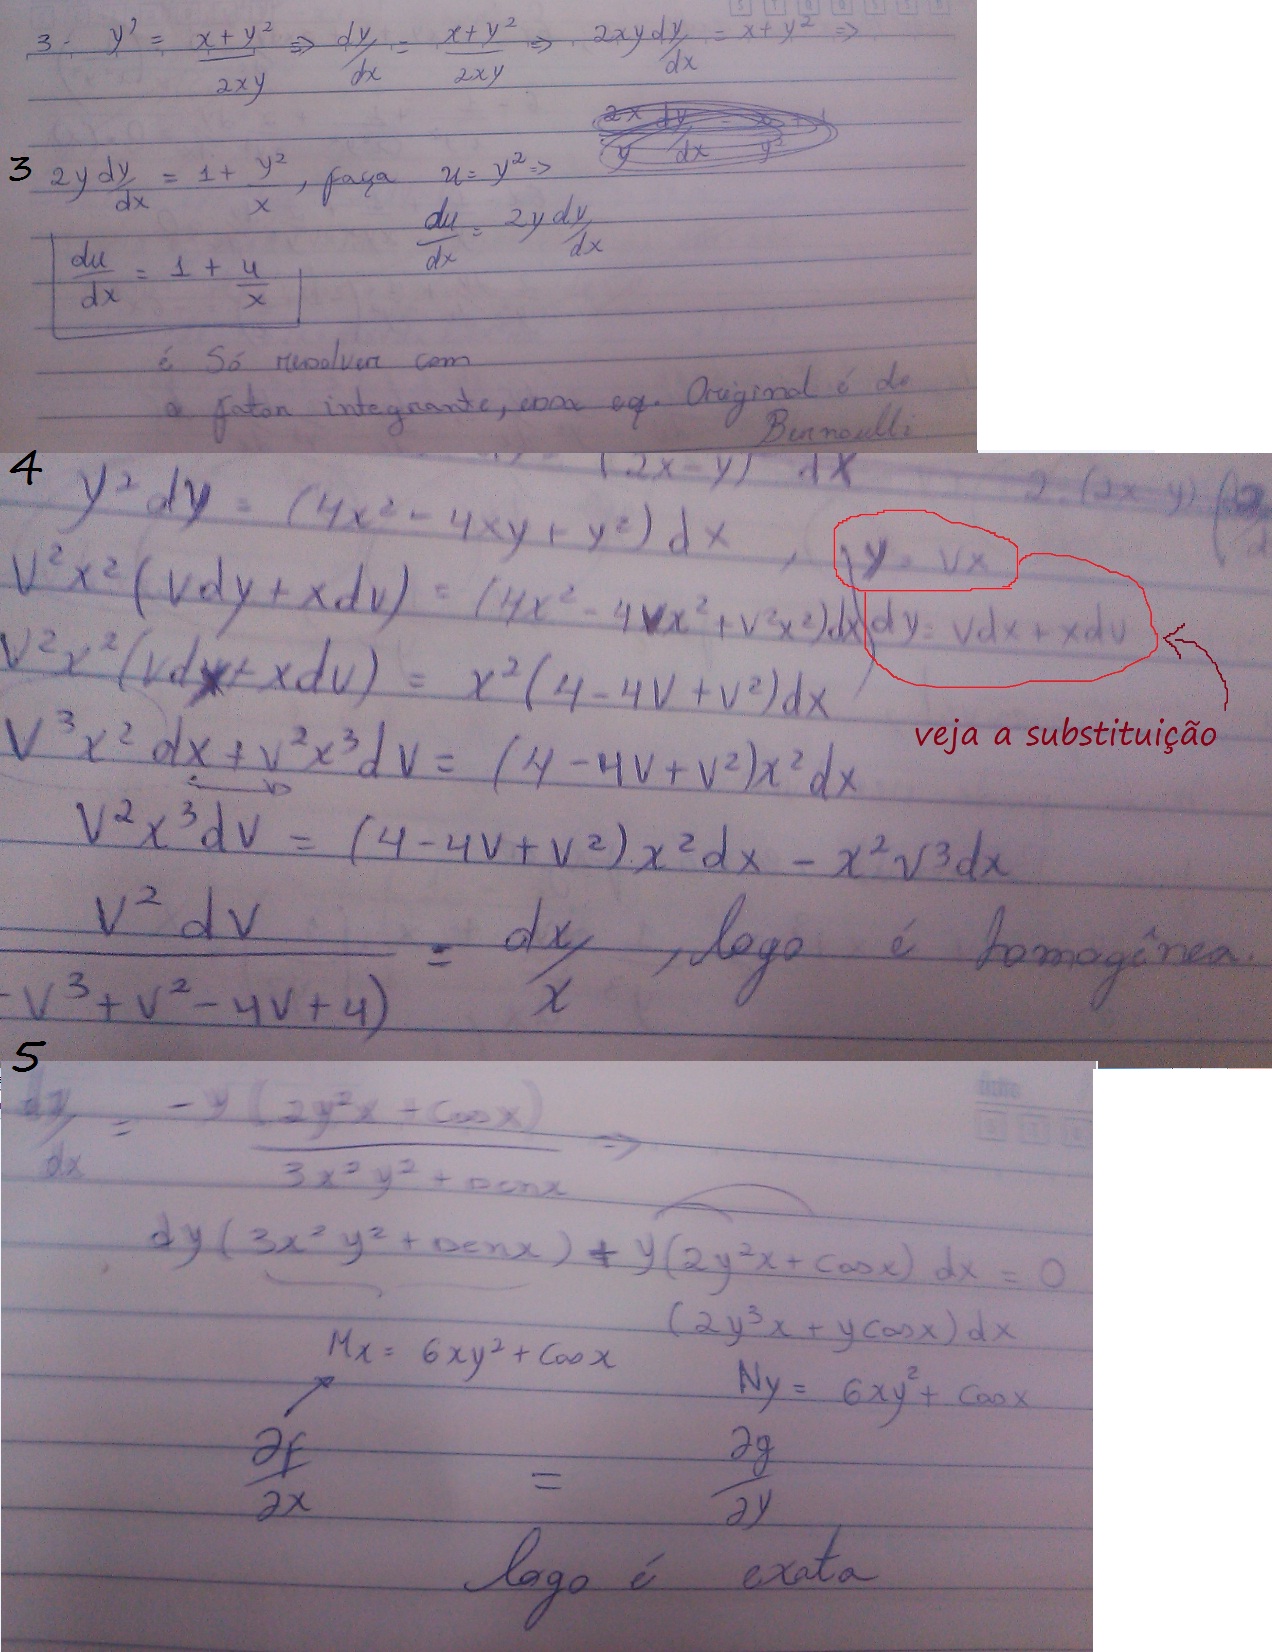 3 - y' = x + y² / 2xy => dy/dx = x + y² / 2xy => 2xy dy/dx = x + y² =>
3
2y dy/dx = 1 + y²/x, faça u = y² =>
du/dx = 2y dy/dx
du/dx = 1 + u/x
é só resolver com
o fator integrante, eq. Original é de
Bernoulli
4
(2x - y)² dx
y² dy = (4x² - 4xy + y²) dx, y = vx
v²x²(vdy + xdv) = (4x² - 4vx² + v²x²)dx dy = vdx + xdv
v²x²(vdx + xdv) = x²(4 - 4v + v²)dx
veja a substituição
v³x² dx + v²x³dv = (4 - 4v + v²)x²dx
v²x³dv = (4 - 4v + v²).x²dx - x²v³dx
v² dv / -v³ + v² - 4v + 4) = dx/x, logo é homogênea.
5
dy/dx = -y (2y²x + cosx) / 3x²y² + senx =>
dy (3x²y² + senx) + y(2y²x + cosx) dx = 0
(2y³x + ycosx)dx
Mx = 6xy² + cosx
Ny = 6xy² + cosx
∂f/∂x = ∂g/∂y
logo é exata